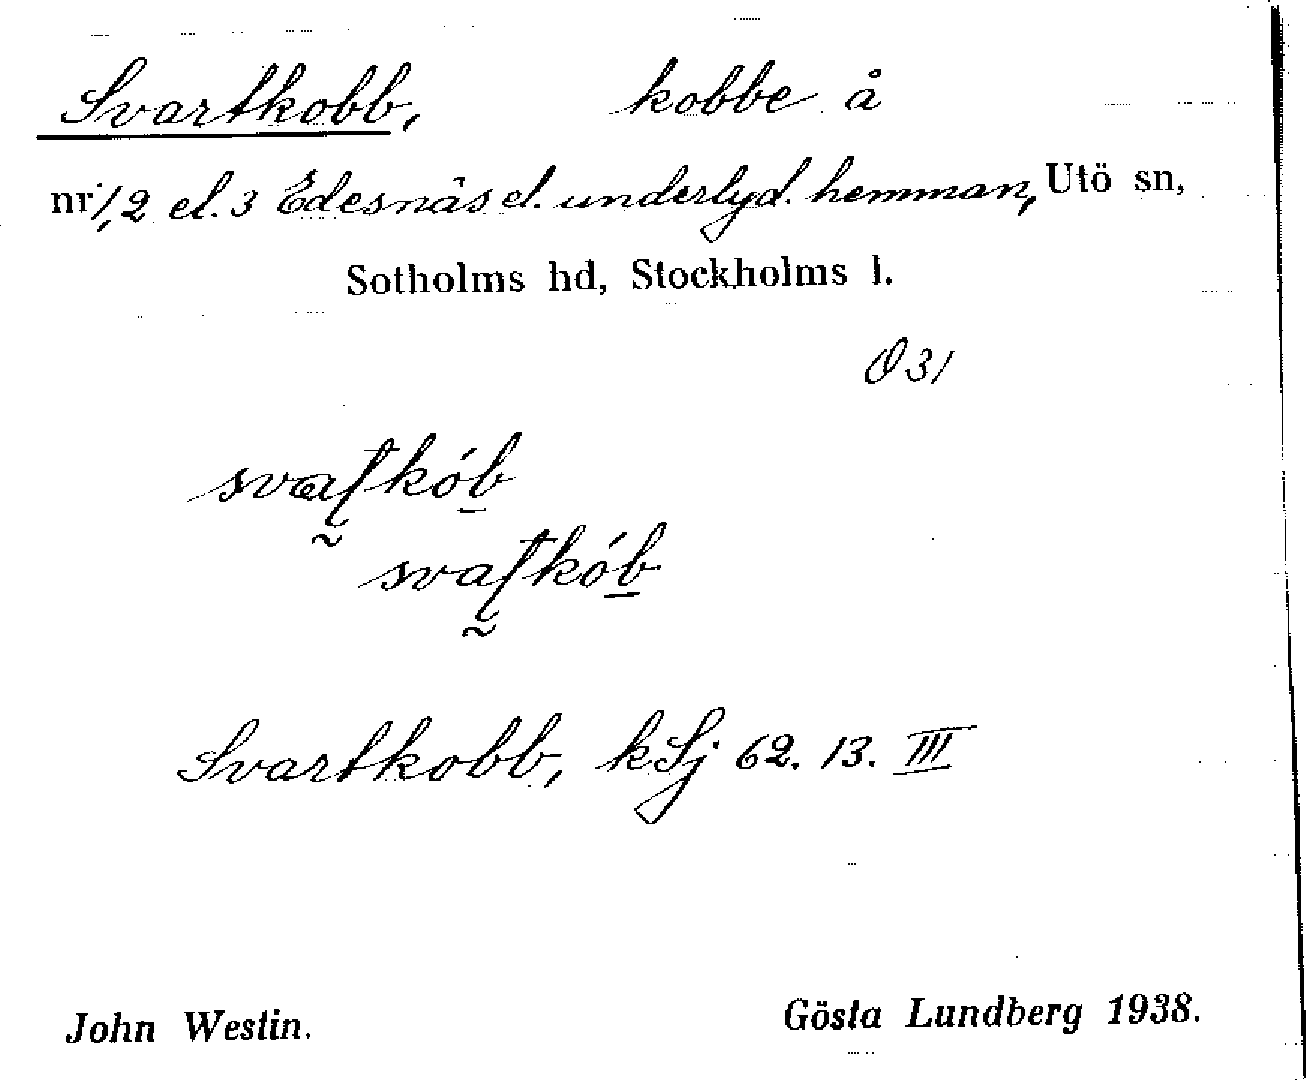 Svartkobb, kobbe å
nr 1, 2 el. 3 Edesnäs el. underlyd. hemman, Utö sn,
Sotholms hd, Stockholms l.
Ö 31
svaʈkób̲
svaʈkób̲
Svartkobb, kSj 62. 13. III
John Westin. Gösta Lundberg 1938.